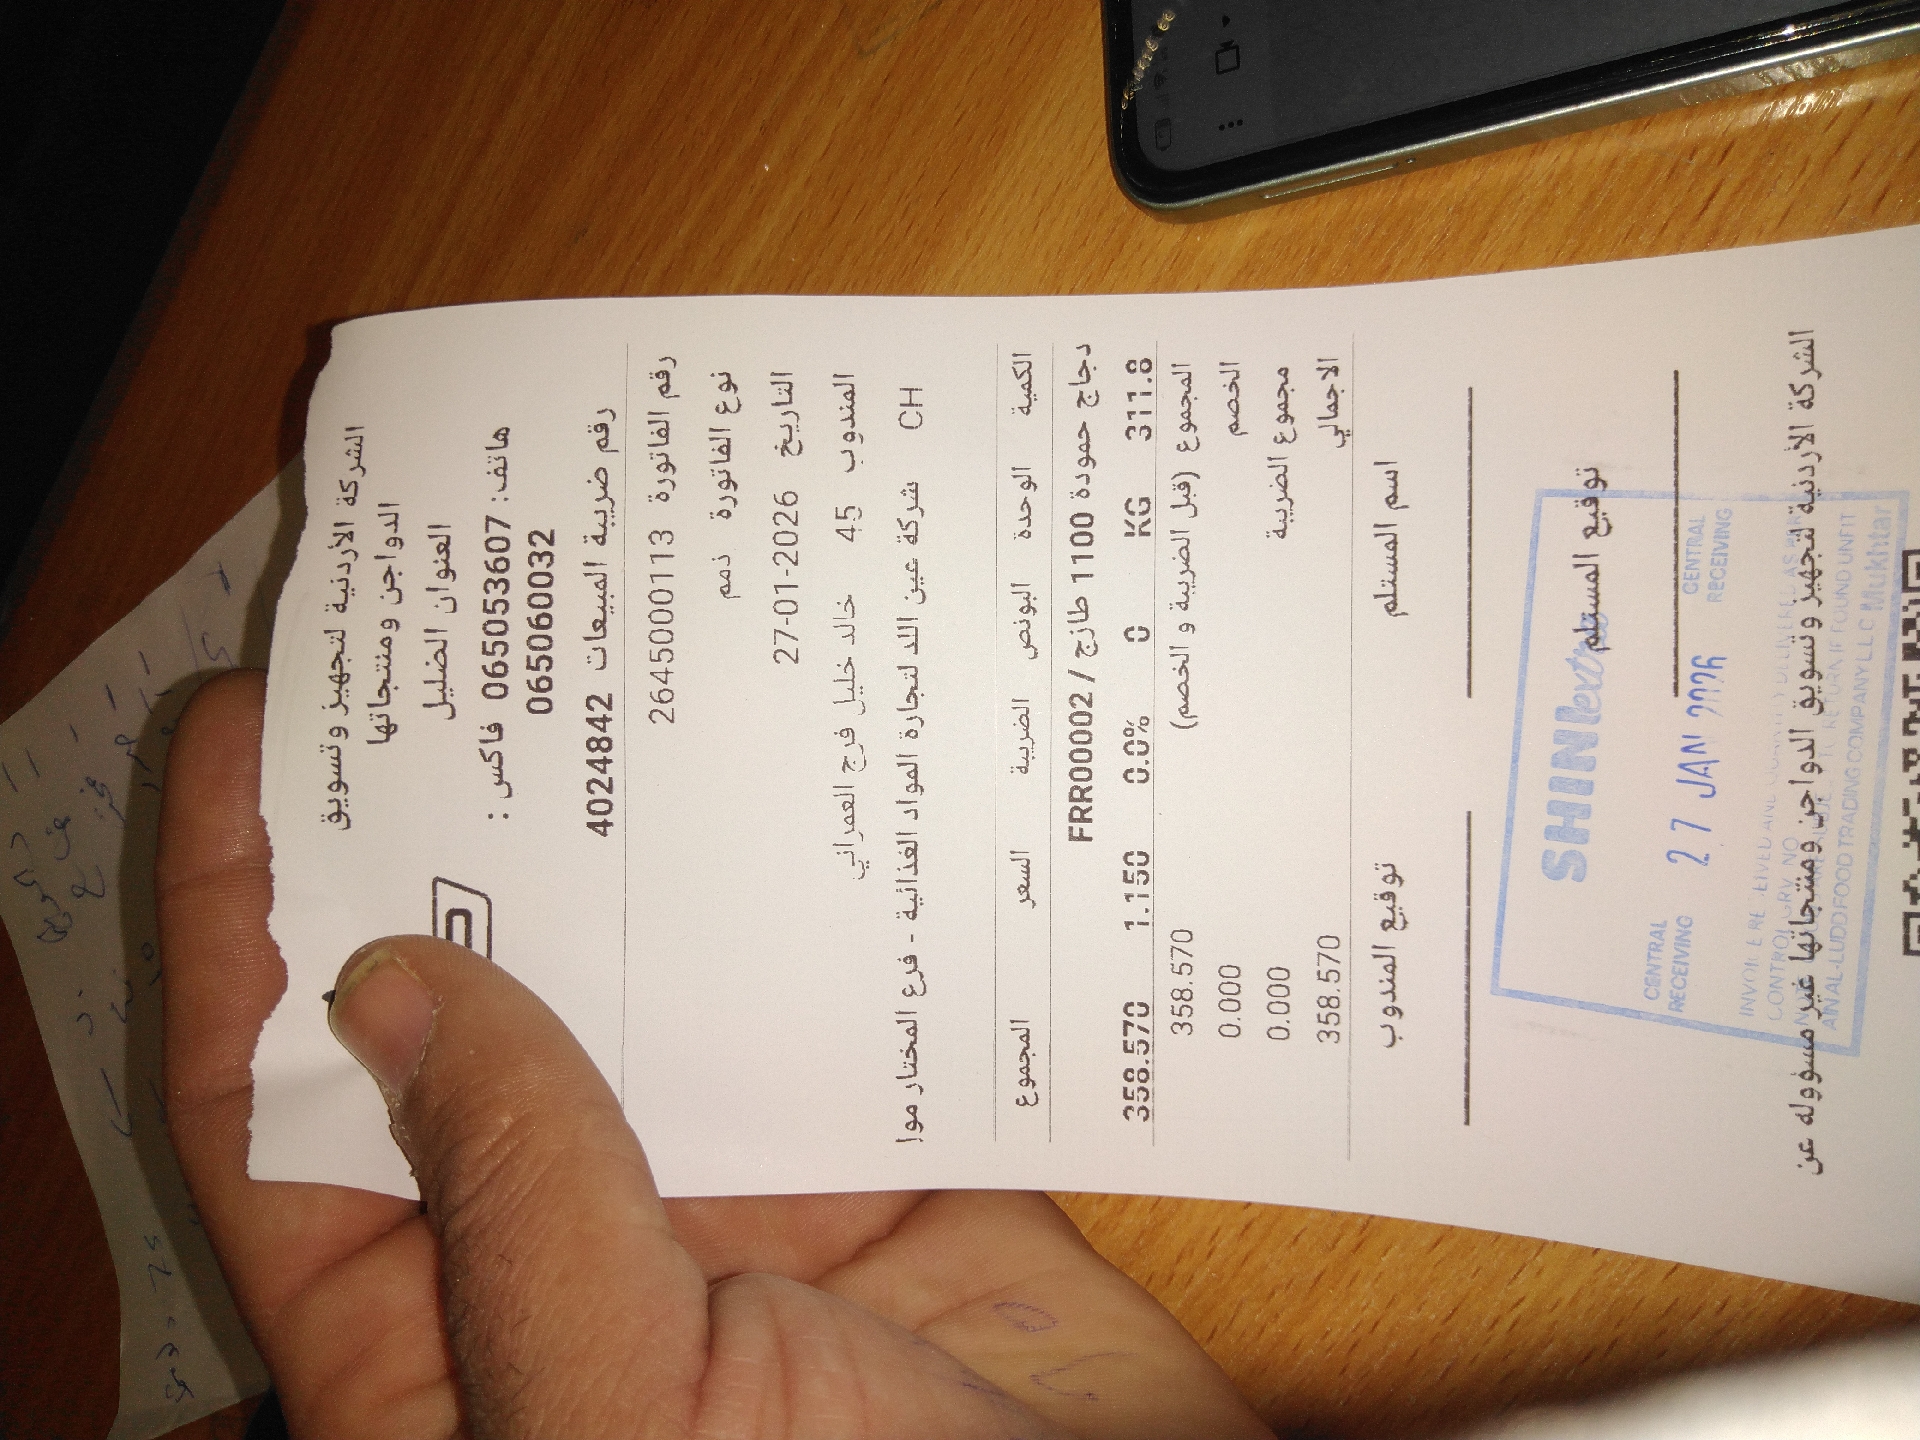 الشركة الأردنية لتجهيز وتسويق
الدواجن ومنتجاتها
العنوان الضليل
هاتف: 065053607 فاكس :
065060032
رقم ضريبة المبيعات 4024842
رقم الفاتورة 2645000113
نوع الفاتورة ذمم
التاريخ 27-01-2026
المندوب 45 خالد خليل فرج العمراني
CH شركة عين اللد لتجارة المواد الغذائية - فرع المختار موا
الكمية الوحدة البونص الضريبة السعر المجموع
دجاج حمودة 1100 طازج / FRR00002
311.8 KG 0 0.0% 1.150 358.570
المجموع (قبل الضريبة و الخصم) 358.570
الخصم 0.000
مجموع الضريبة 0.000
الاجمالي 358.570
اسم المستلم توقيع المندوب
توقيع المستلم
SHINI
CENTRAL RECEIVING 27 JAN 2026 CENTRAL RECEIVING
CONTROL GRV NO
AINAL-LUDD FOOD TRADING COMPANY LLC Mukhtar
الشركة الأردنية لتجهيز وتسويق الدواجن ومنتجاتها غير مسؤوله عن